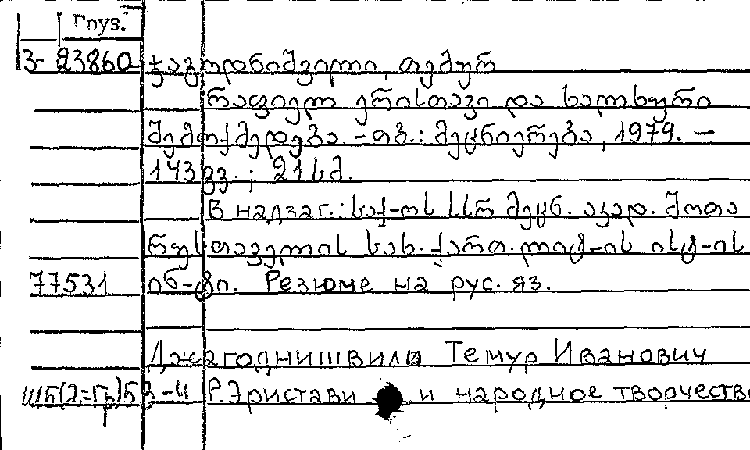 Груз.
3-23860 ჯაგოდნიშვილი, თემურ
რაფიელ ერისთავი და ხალხური
შემოქმედება. - თბ.: მეცნიერება, 1979. -
143 გვ. ; 21 სმ.
В надзаг.: საქ-ოს სსრ მეცნ. აკად. შოთა
რუსთაველის სახ. ქართ. ლიტ-ის ისტ-ის
77531 ინ-ტი. Резюме на рус. яз.
Джагоднишвили Темур Иванович
Ш5(2=Гр)5 3-4 Р. Эристави и народное творчество